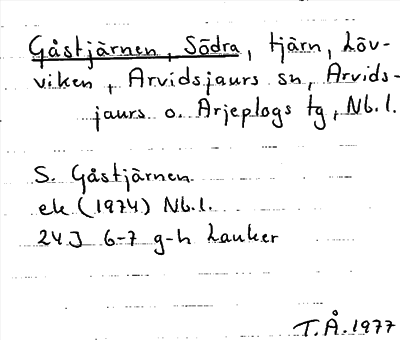 Gåstjärnen, Södra, tjärn, Löv-
viken, Arvidsjaurs sn, Arvids-
jaurs o. Arjeplogs tg, Nb. l.
S. Gåstjärnen
ek (1974) Nb. l.
24J 6-7 g-h Lauker
T.Å. 1977